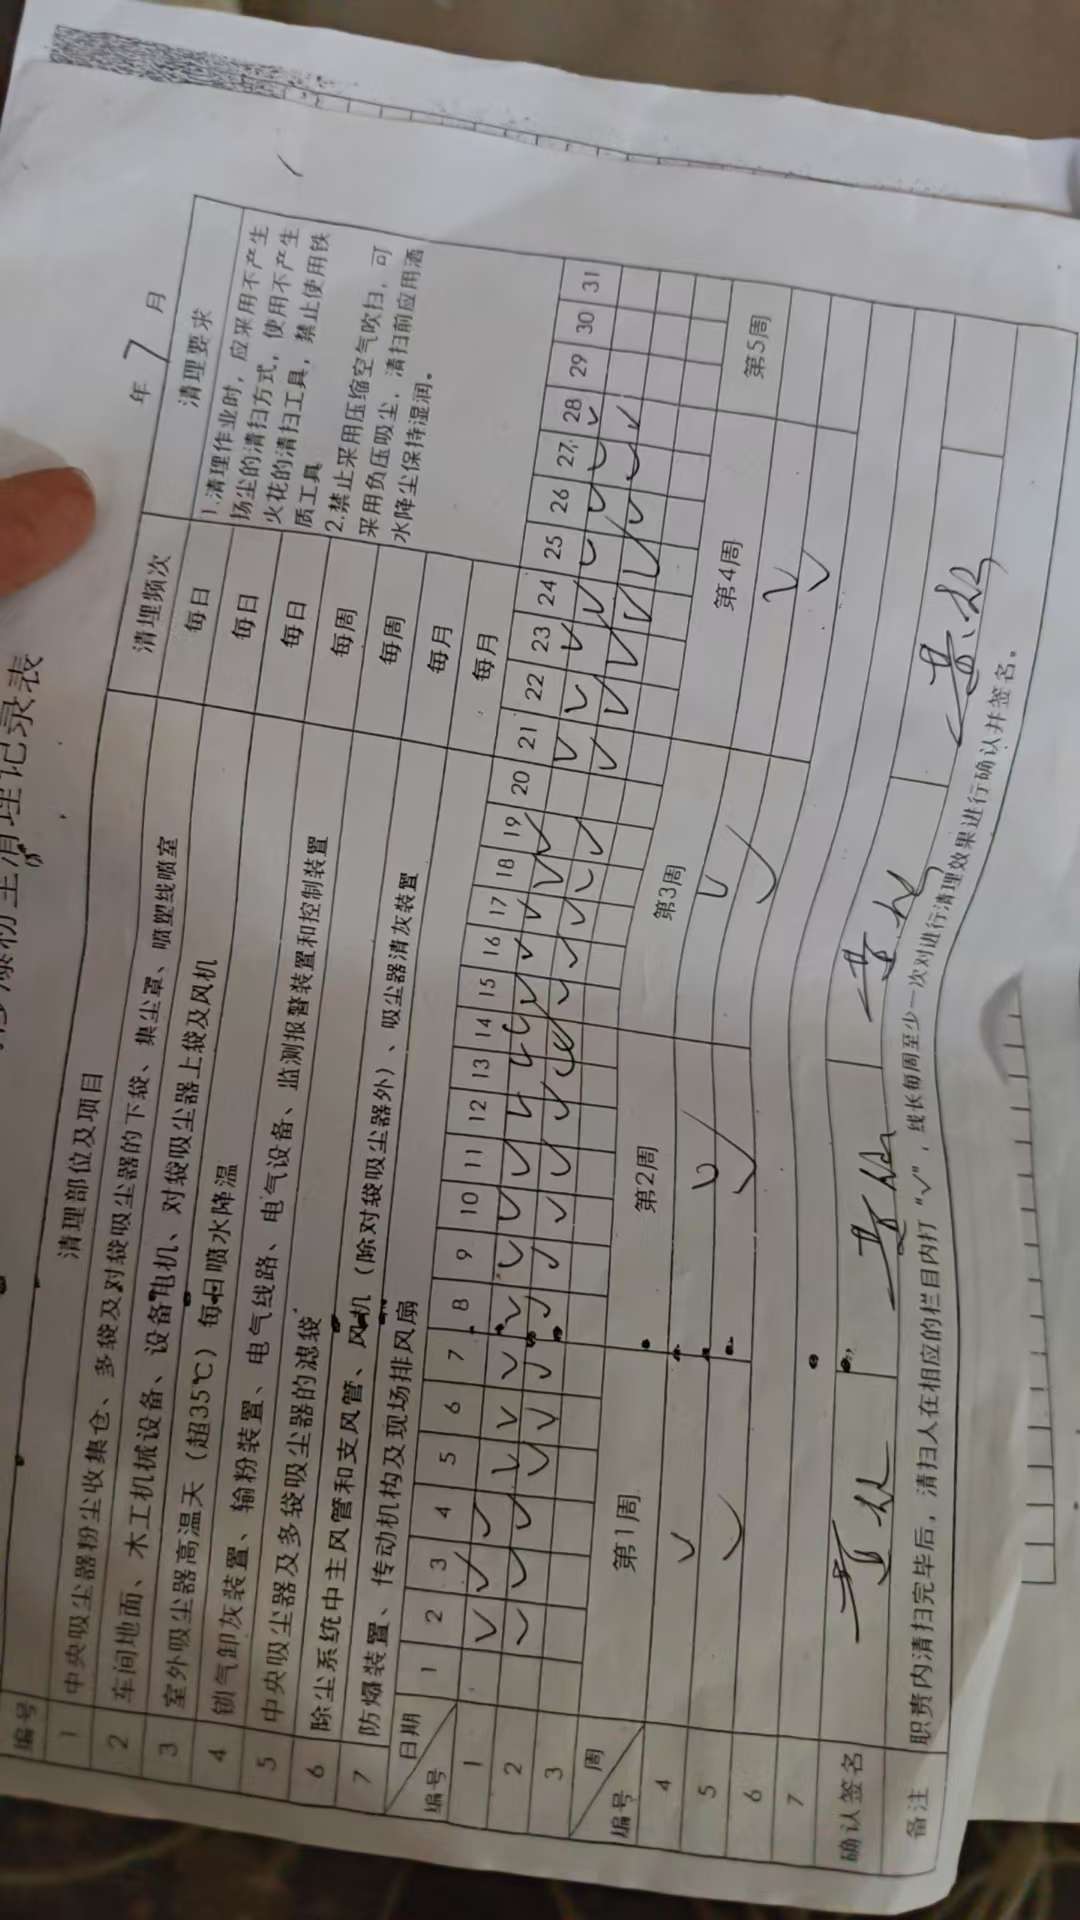 清理记录表
年 7 月
编号 清理部位及项目 清理频次 清理要求
1 中央吸尘器粉尘收集仓、多袋及对袋吸尘器的下袋、集尘罩、喷塑线喷室 每日
2 车间地面、木工机械设备、设备电机、对袋吸尘器上袋及风机 每日
3 室外吸尘器高温天（超35℃）每日喷水降温 每日
4 锁气卸灰装置、输粉装置、电气线路、电气设备、监测报警装置和控制装置 每周
5 中央吸尘器及多袋吸尘器的滤袋 每周
6 除尘系统中主风管和支风管、风机（除对袋吸尘器外）、吸尘器清灰装置 每月
7 防爆装置、传动机构及现场排风扇 每月
1.清理作业时，应采用不产生
扬尘的清扫方式，使用不产生
火花的清扫工具，禁止使用铁
质工具
2.禁止采用压缩空气吹扫，可
采用负压吸尘，清扫前应用洒
水降尘保持湿润。
日期 编号 1 2 3 4 5 6 7 8 9 10 11 12 13 14 15 16 17 18 19 20 21 22 23 24 25 26 27 28 29 30 31
1 ✓ ✓ ✓ ✓ ✓ ✓ ✓ ✓ ✓ ✓ ✓ ✓ ✓ ✓ ✓ ✓ ✓ ✓ ✓ ✓ ✓ ✓ ✓ ✓ ✓ ✓
2 ✓ ✓ ✓ ✓ ✓ ✓ ✓ ✓ ✓ ✓ ✓ ✓ ✓ ✓ ✓ ✓ ✓ ✓ ✓ ✓ ✓ ✓ ✓ ✓ ✓ ✓
3
周 编号 第1周 第2周 第3周 第4周 第5周
4 ✓ ✓ ✓ ✓
5 ✓ ✓ ✓ ✓
6
7
确认签名
备注 职责内清扫完毕后，清扫人在相应的栏目内打“✓”，线长每周至少一次对进行清理效果进行确认并签名。